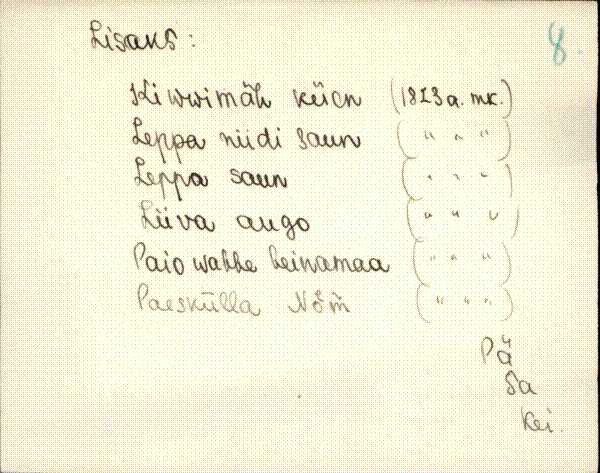 Lisaks: 8.
Kiwwimäh küün (1823 a. mk.)
Leppa niidi saun ( " " " )
Leppa saun ( " " " )
Liiva augo ( " " " )
Paio wahhe heinamaa ( " " " )
Paeskülla Nõm̃ ( " " " )
Pä
Sa
Kei.